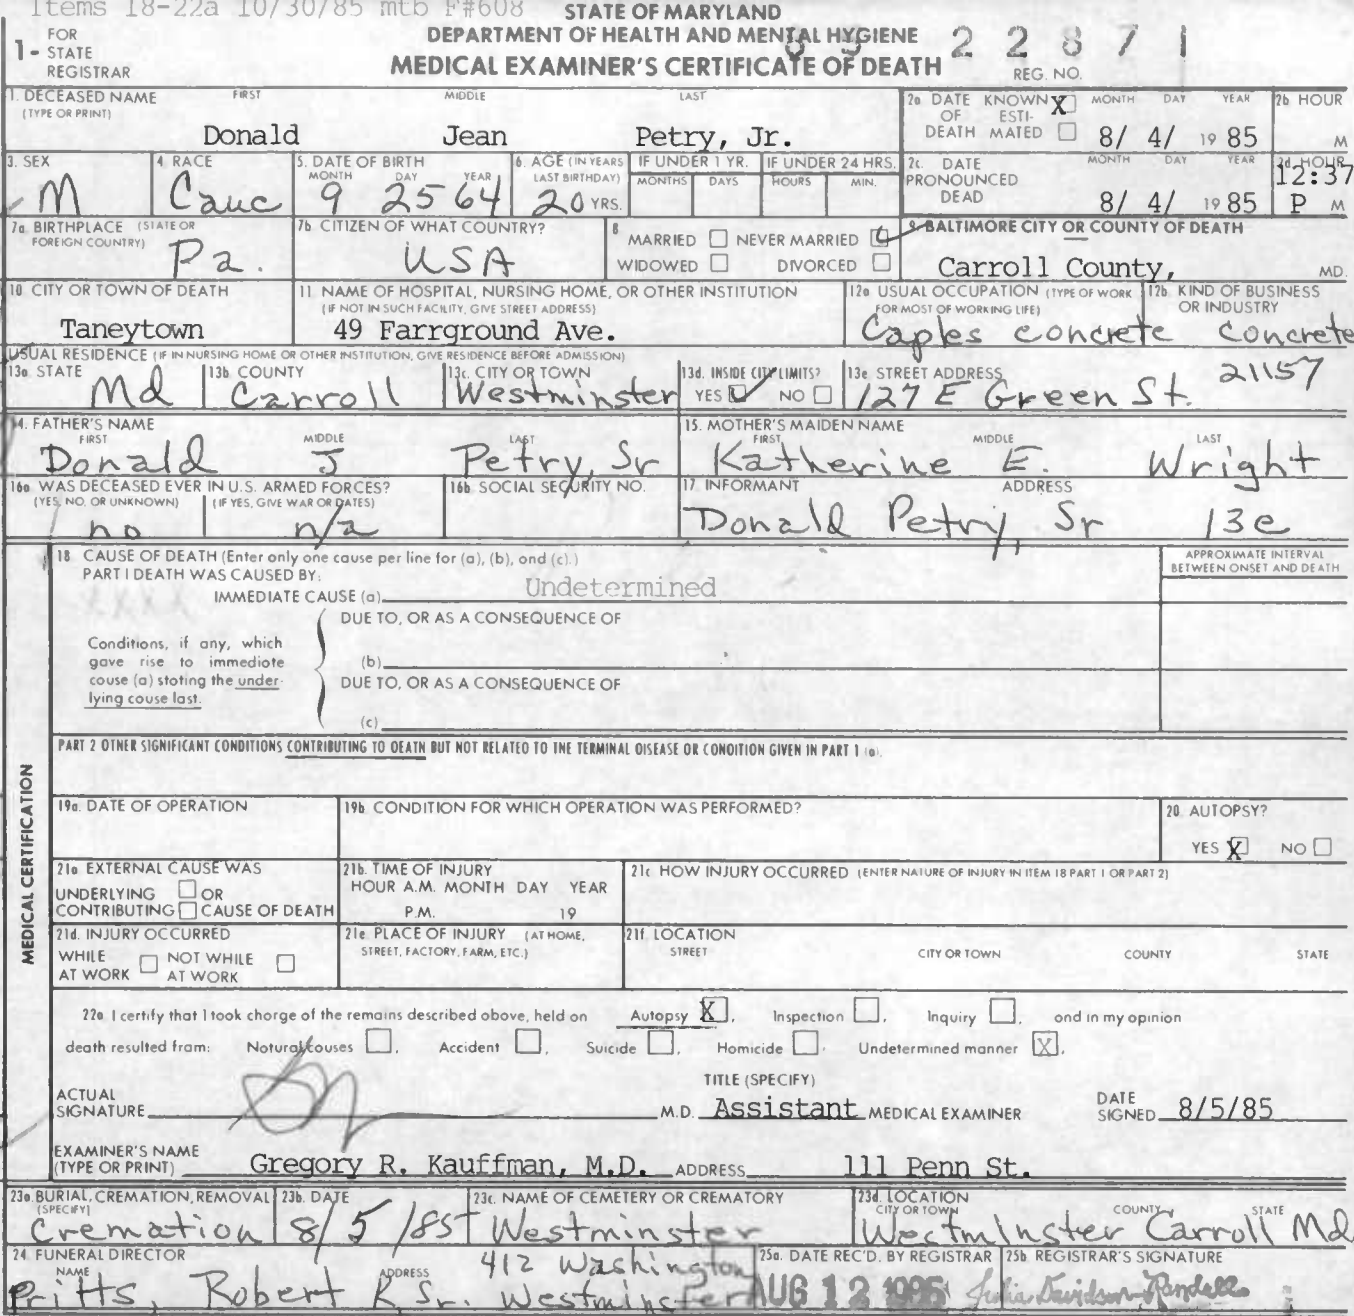 Items 18-22a 10/30/85 mtb F#608
STATE OF MARYLAND
DEPARTMENT OF HEALTH AND MENTAL HYGIENE
MEDICAL EXAMINER'S CERTIFICATE OF DEATH
1- FOR STATE REGISTRAR
85 22871
REG. NO.
1. DECEASED NAME (TYPE OR PRINT) FIRST MIDDLE LAST
Donald Jean Petry, Jr.
2a DATE OF DEATH KNOWN X ESTIMATED MONTH DAY YEAR
8/ 4/ 19 85
2b HOUR M
3. SEX M
4. RACE Cauc
5. DATE OF BIRTH MONTH DAY YEAR
9 25 64
6. AGE (IN YEARS LAST BIRTHDAY) 20 YRS.
IF UNDER 1 YR. MONTHS DAYS
IF UNDER 24 HRS. HOURS MIN.
2c. DATE PRONOUNCED DEAD MONTH DAY YEAR
8/ 4/ 19 85
2d. HOUR 12:37 P M
7a BIRTHPLACE (STATE OR FOREIGN COUNTRY) Pa.
7b CITIZEN OF WHAT COUNTRY? USA
8 MARRIED NEVER MARRIED
WIDOWED DIVORCED
9. BALTIMORE CITY OR COUNTY OF DEATH
Carroll County, MD.
10 CITY OR TOWN OF DEATH
Taneytown
11. NAME OF HOSPITAL, NURSING HOME, OR OTHER INSTITUTION
(IF NOT IN SUCH FACILITY, GIVE STREET ADDRESS)
49 Farrground Ave.
12a USUAL OCCUPATION (TYPE OF WORK FOR MOST OF WORKING LIFE)
Caples concrete
12b. KIND OF BUSINESS OR INDUSTRY
concrete
USUAL RESIDENCE (IF IN NURSING HOME OR OTHER INSTITUTION, GIVE RESIDENCE BEFORE ADMISSION)
13a STATE Md
13b COUNTY Carroll
13c. CITY OR TOWN Westminster
13d. INSIDE CITY LIMITS? YES NO
13e STREET ADDRESS 21157
127 E Green St.
14. FATHER'S NAME FIRST MIDDLE LAST
Donald J Petry, Sr
15. MOTHER'S MAIDEN NAME FIRST MIDDLE LAST
Katherine E. Wright
16a WAS DECEASED EVER IN U.S. ARMED FORCES?
(YES, NO, OR UNKNOWN) (IF YES, GIVE WAR OR DATES)
no n/a
16b. SOCIAL SECURITY NO.
17 INFORMANT ADDRESS
Donald Petry, Sr 13e
MEDICAL CERTIFICATION
18 CAUSE OF DEATH (Enter only one cause per line for (a), (b), and (c).)
APPROXIMATE INTERVAL BETWEEN ONSET AND DEATH
PART I DEATH WAS CAUSED BY:
XXXX
IMMEDIATE CAUSE (a) Undetermined
DUE TO, OR AS A CONSEQUENCE OF
Conditions, if any, which
gave rise to immediate
cause (a) stating the under-
lying cause last.
(b)
DUE TO, OR AS A CONSEQUENCE OF
(c)
PART 2 OTHER SIGNIFICANT CONDITIONS CONTRIBUTING TO DEATH BUT NOT RELATED TO THE TERMINAL DISEASE OR CONDITION GIVEN IN PART 1 (a).
19a. DATE OF OPERATION
19b. CONDITION FOR WHICH OPERATION WAS PERFORMED?
20 AUTOPSY?
YES X NO
21a EXTERNAL CAUSE WAS
UNDERLYING OR
CONTRIBUTING CAUSE OF DEATH
21b. TIME OF INJURY
HOUR A.M. MONTH DAY YEAR
P.M. 19
21c HOW INJURY OCCURRED (ENTER NATURE OF INJURY IN ITEM 18 PART 1 OR PART 2)
21d. INJURY OCCURRED
WHILE AT WORK NOT WHILE AT WORK
21e. PLACE OF INJURY (AT HOME, STREET, FACTORY, FARM, ETC.)
21f. LOCATION
STREET CITY OR TOWN COUNTY STATE
22a I certify that I took charge of the remains described above, held on Autopsy X, Inspection, Inquiry, and in my opinion
death resulted from: Natural causes, Accident, Suicide, Homicide, Undetermined manner X.
ACTUAL SIGNATURE M.D.
TITLE (SPECIFY)
Assistant MEDICAL EXAMINER
DATE SIGNED 8/5/85
EXAMINER'S NAME (TYPE OR PRINT) Gregory R. Kauffman, M.D. ADDRESS 111 Penn St.
23a. BURIAL, CREMATION, REMOVAL (SPECIFY) Cremation
23b. DATE 8/5/85
23c. NAME OF CEMETERY OR CREMATORY Westminster
23d. LOCATION CITY OR TOWN COUNTY STATE
Westminster Carroll Md
24 FUNERAL DIRECTOR
NAME ADDRESS
412 Washington
Pritts, Robert R Sr. Westminster
25a. DATE REC'D. BY REGISTRAR
AUG 12 1985
25b. REGISTRAR'S SIGNATURE
Julia Davidson-Randall